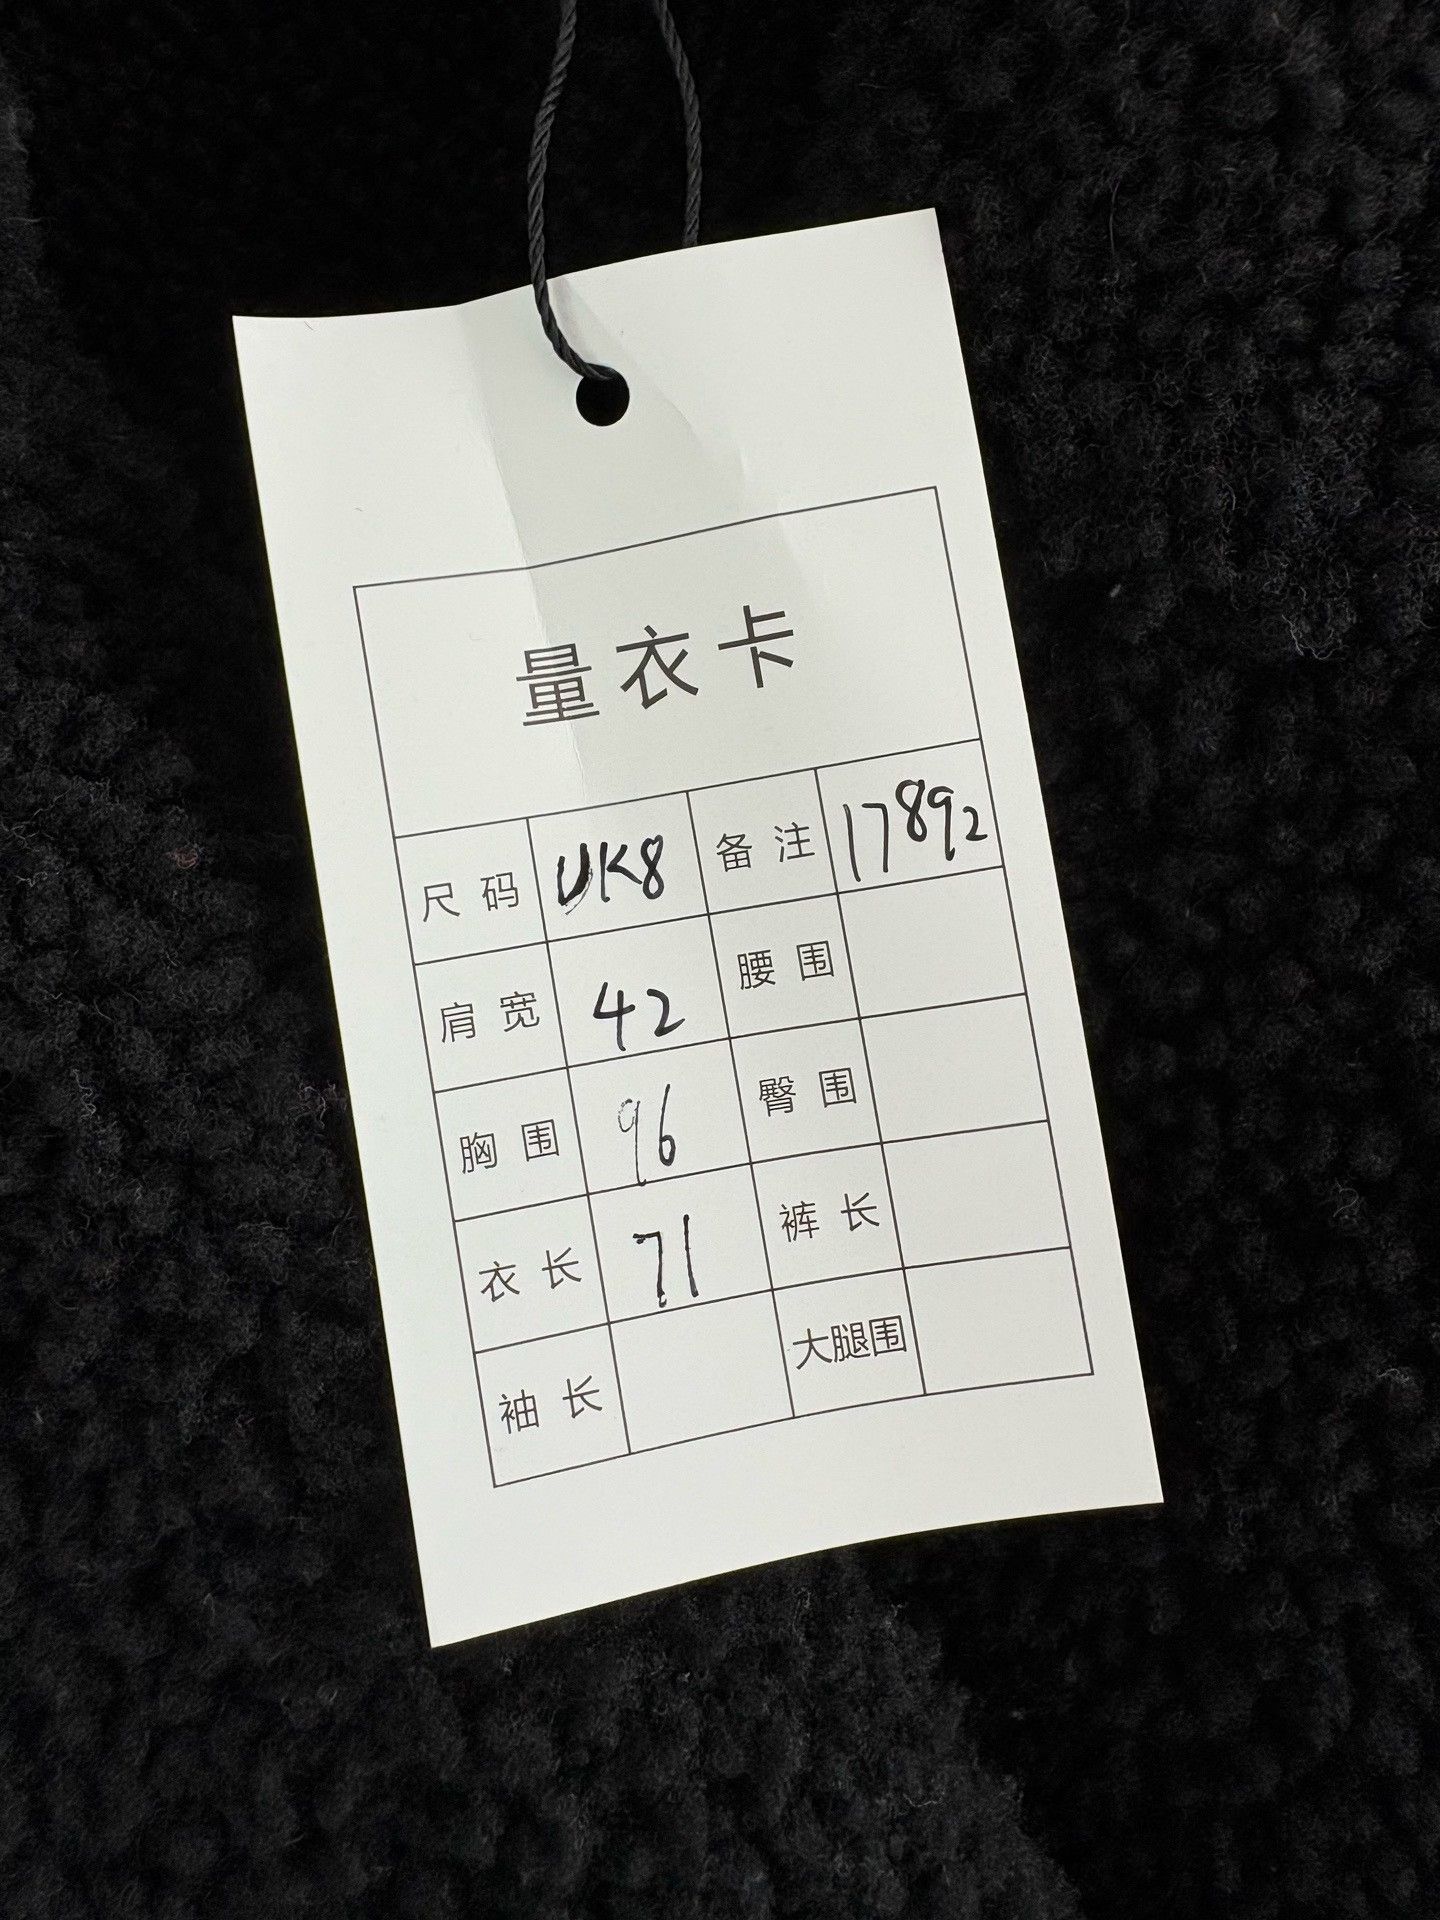 量衣卡
尺码 UK8 备注 17892
肩宽 42 腰围
胸围 96 臀围
衣长 71 裤长
袖长 大腿围